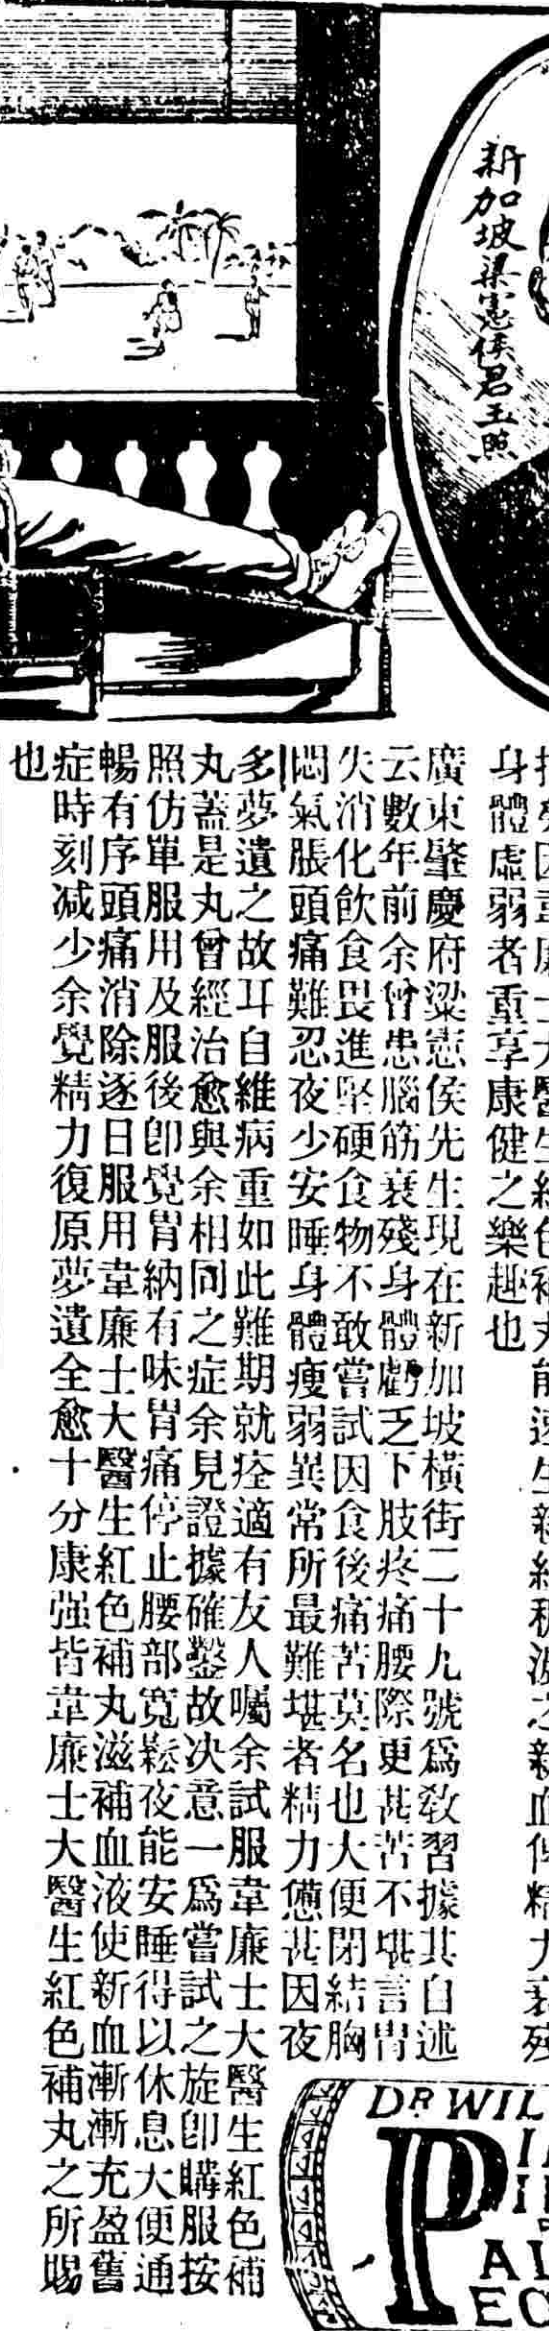 新加坡梁憲侯君玉照
身體虛弱者重享康健之樂趣也
廣東肇慶府梁憲侯先生現在新加坡橫街二十九號爲敎習據其自述
云數年前余曾患腦筋衰殘身體虧乏下肢疼痛腰際更甚苦不堪言胃
失消化飲食畏進堅硬食物不敢嘗試因食後痛苦莫名也大便閉結胸
悶氣脹頭痛難忍夜少安睡身體瘦弱異常所最難堪者精力憊甚因夜
多夢遺之故耳自維病重如此難期就痊適有友人囑余試服韋廉士大醫生紅色補
丸蓋是丸曾經治愈與余相同之症余見證據確鑿故决意一爲嘗試之旋卽購服按
照仿單服用及服後卽覺胃納有味胃痛停止腰部寬鬆夜能安睡得以休息大便通
暢有序頭痛消除逐日服用韋廉士大醫生紅色補丸滋補血液使新血漸漸充盈舊
症時刻减少余覺精力復原夢遺全愈十分康强皆韋廉士大醫生紅色補丸之所賜
也
DR WIL
P